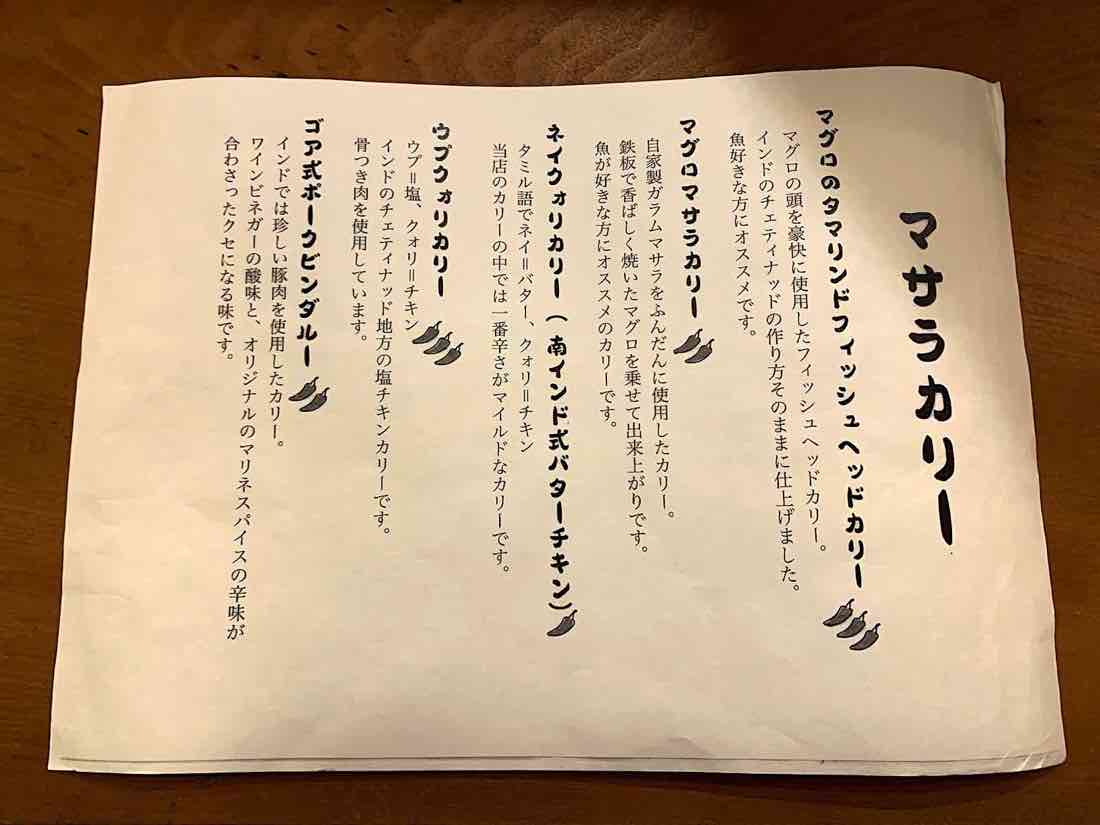 マサラカリー
マグロのタマリンドフィッシュヘッドカリー
マグロの頭を豪快に使用したフィッシュヘッドカリー。
インドのチェティナッドの作り方そのままに仕上げました。
魚好きな方にオススメです。
マグロマサラカリー
自家製ガラムマサラをふんだんに使用したカリー。
鉄板で香ばしく焼いたマグロを乗せて出来上がりです。
魚が好きな方にオススメのカリーです。
ネイクォリカリー(南インド式バターチキン)
タミル語でネイ=バター、クォリ=チキン
当店のカリーの中では一番辛さがマイルドなカリーです。
ウプクォリカリー
ウプ=塩、クォリ=チキン
インドのチェティナッド地方の塩チキンカリーです。
骨つき肉を使用しています。
ゴア式ポークビンダルー
インドでは珍しい豚肉を使用したカリー。
ワインビネガーの酸味と、オリジナルのマリネスパイスの辛味が
合わさったクセになる味です。